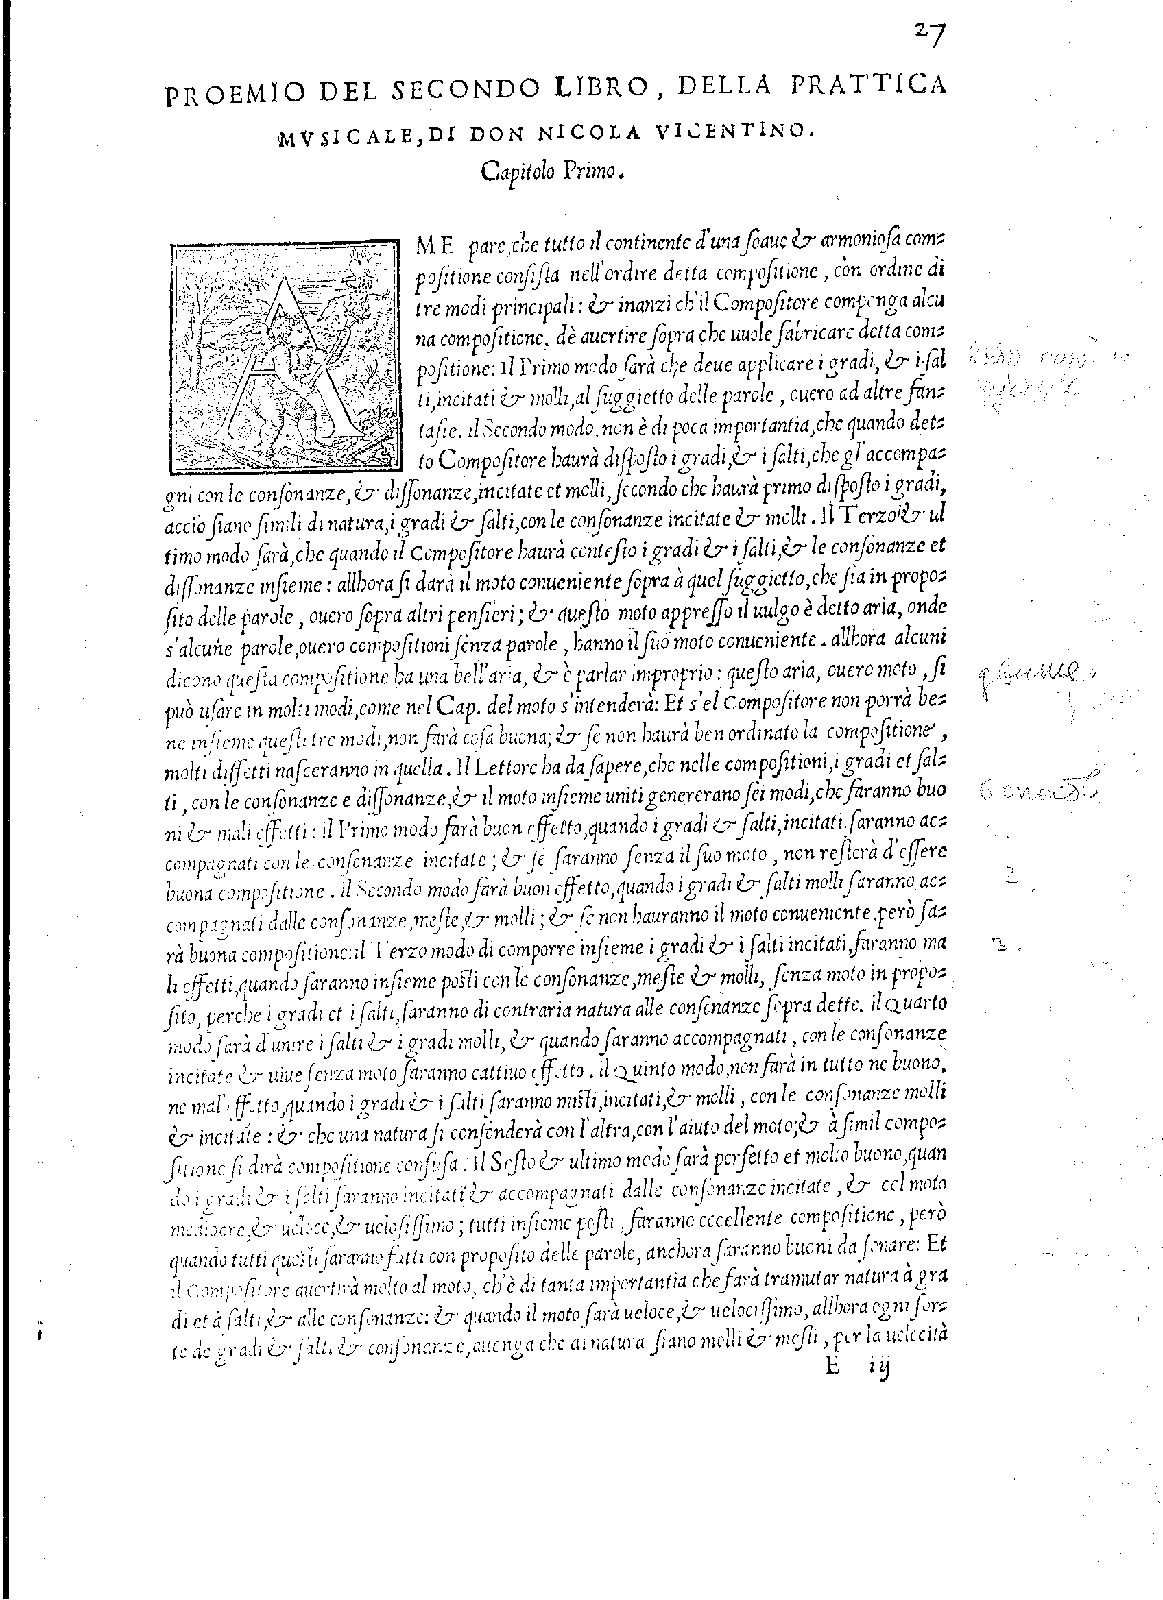 27
PROEMIO DEL SECONDO LIBRO, DELLA PRATTICA
MVSICALE, DI DON NICOLA VICENTINO.
Capitolo Primo.
A ME pare, che tutto il continente d'una soaue & armoniosa com=
positione consista nell'ordire detta compositione, con ordine di
tre modi principali: & inanzi ch'il Compositore componga alcu
na compositione, dè auertire sopra che uuole fabricare detta com=
positione: Il Primo modo sarà che deue applicare i gradi, & i sal
ti, incitati & molli, al suggietto delle parole, ouero ad altre fan=
tasie. il Secondo modo, non è di poca importantia, che quando det=
to Compositore haurà disposto i gradi, & i salti, che gl'accompa=
gni con le consonanze, & dissonanze, incitate et molli, secondo che haurà primo disposto i gradi,
acciò siano simili di natura, i gradi & salti, con le consonanze incitate & molli. Il Terzo & ul
timo modo sarà, che quando il Compositore haurà contesto i gradi & i salti, & le consonanze et
dissonanze insieme: allhora si darà il moto conueniente sopra à quel suggietto, che sia in propo=
sito delle parole, ouero sopra altri pensieri; & questo moto appresso il uulgo è detto aria, onde
s'alcune parole, ouero compositioni senza parole, hanno il suo moto conueniente. allhora alcuni
dicono questa compositione ha una bell'aria, & è parlar improprio: questo aria, ouero moto, si
può usare in molti modi, come nel Cap. del moto s'intenderà: Et s'el Compositore non porrà be=
ne insieme questi tre modi, non farà cosa buona; & se non haurà ben ordinato la compositione,
molti diffetti nasceranno in quella. Il Lettore ha da sapere, che nelle compositioni, i gradi et sal=
ti, con le consonanze e dissonanze, & il moto insieme uniti genererano sei modi, che faranno buo
ni & mali effetti: il Primo modo farà buon effetto, quando i gradi & salti, incitati saranno ac=
compagnati con le consonanze incitate; & se saranno senza il suo moto, non resterà d'essere
buona compositione. il Secondo modo farà buon effetto, quando i gradi & salti molli saranno, ac=
compagnati dalle consonanze, meste, & molli; & se non hauranno il moto conueniente, però sa=
rà buona compositione: il Terzo modo di comporre insieme i gradi & i salti incitati, faranno ma
li effetti, quando saranno insieme posti con le consonanze, meste & molli, senza moto in propo=
sito, perche i gradi et i salti, saranno di contraria natura alle consonanze sopra dette. il Quarto
modo sarà d'unire i salti & i gradi molli, & quando saranno accompagnati, con le consonanze
incitate & uiue senza moto faranno cattiuo effetto. il Quinto modo, non farà in tutto ne buono,
ne mal effetto, quando i gradi & i salti saranno misti, incitati, & molli, con le consonanze molli
& incitate: & che una natura si confonderà con l'altra, con l'aiuto del moto; & à simil compo=
sitione si dirà compositione confusa: il Sesto & ultimo modo sarà perfetto et molto buono, quan
do i gradi & i salti saranno incitati & accompagnati dalle consonanze incitate, & col moto
mediocre, & ueloce, & uelosissimo; tutti insieme posti, faranno eccellente compositione, però
quando tutti questi saranno fatti con proposito delle parole, anchora saranno buoni da sonare: Et
il Compositore auertirà molto al moto, ch'è di tanta importantia che farà tramutar natura à gra
di et à salti, & alle consonanze: & quando il moto sarà ueloce, & uelocissimo, allhora ogni sor=
te de gradi & salti & consonanze, auenga che di natura siano molli & mesti, per la uelocità
E iij
2
3.